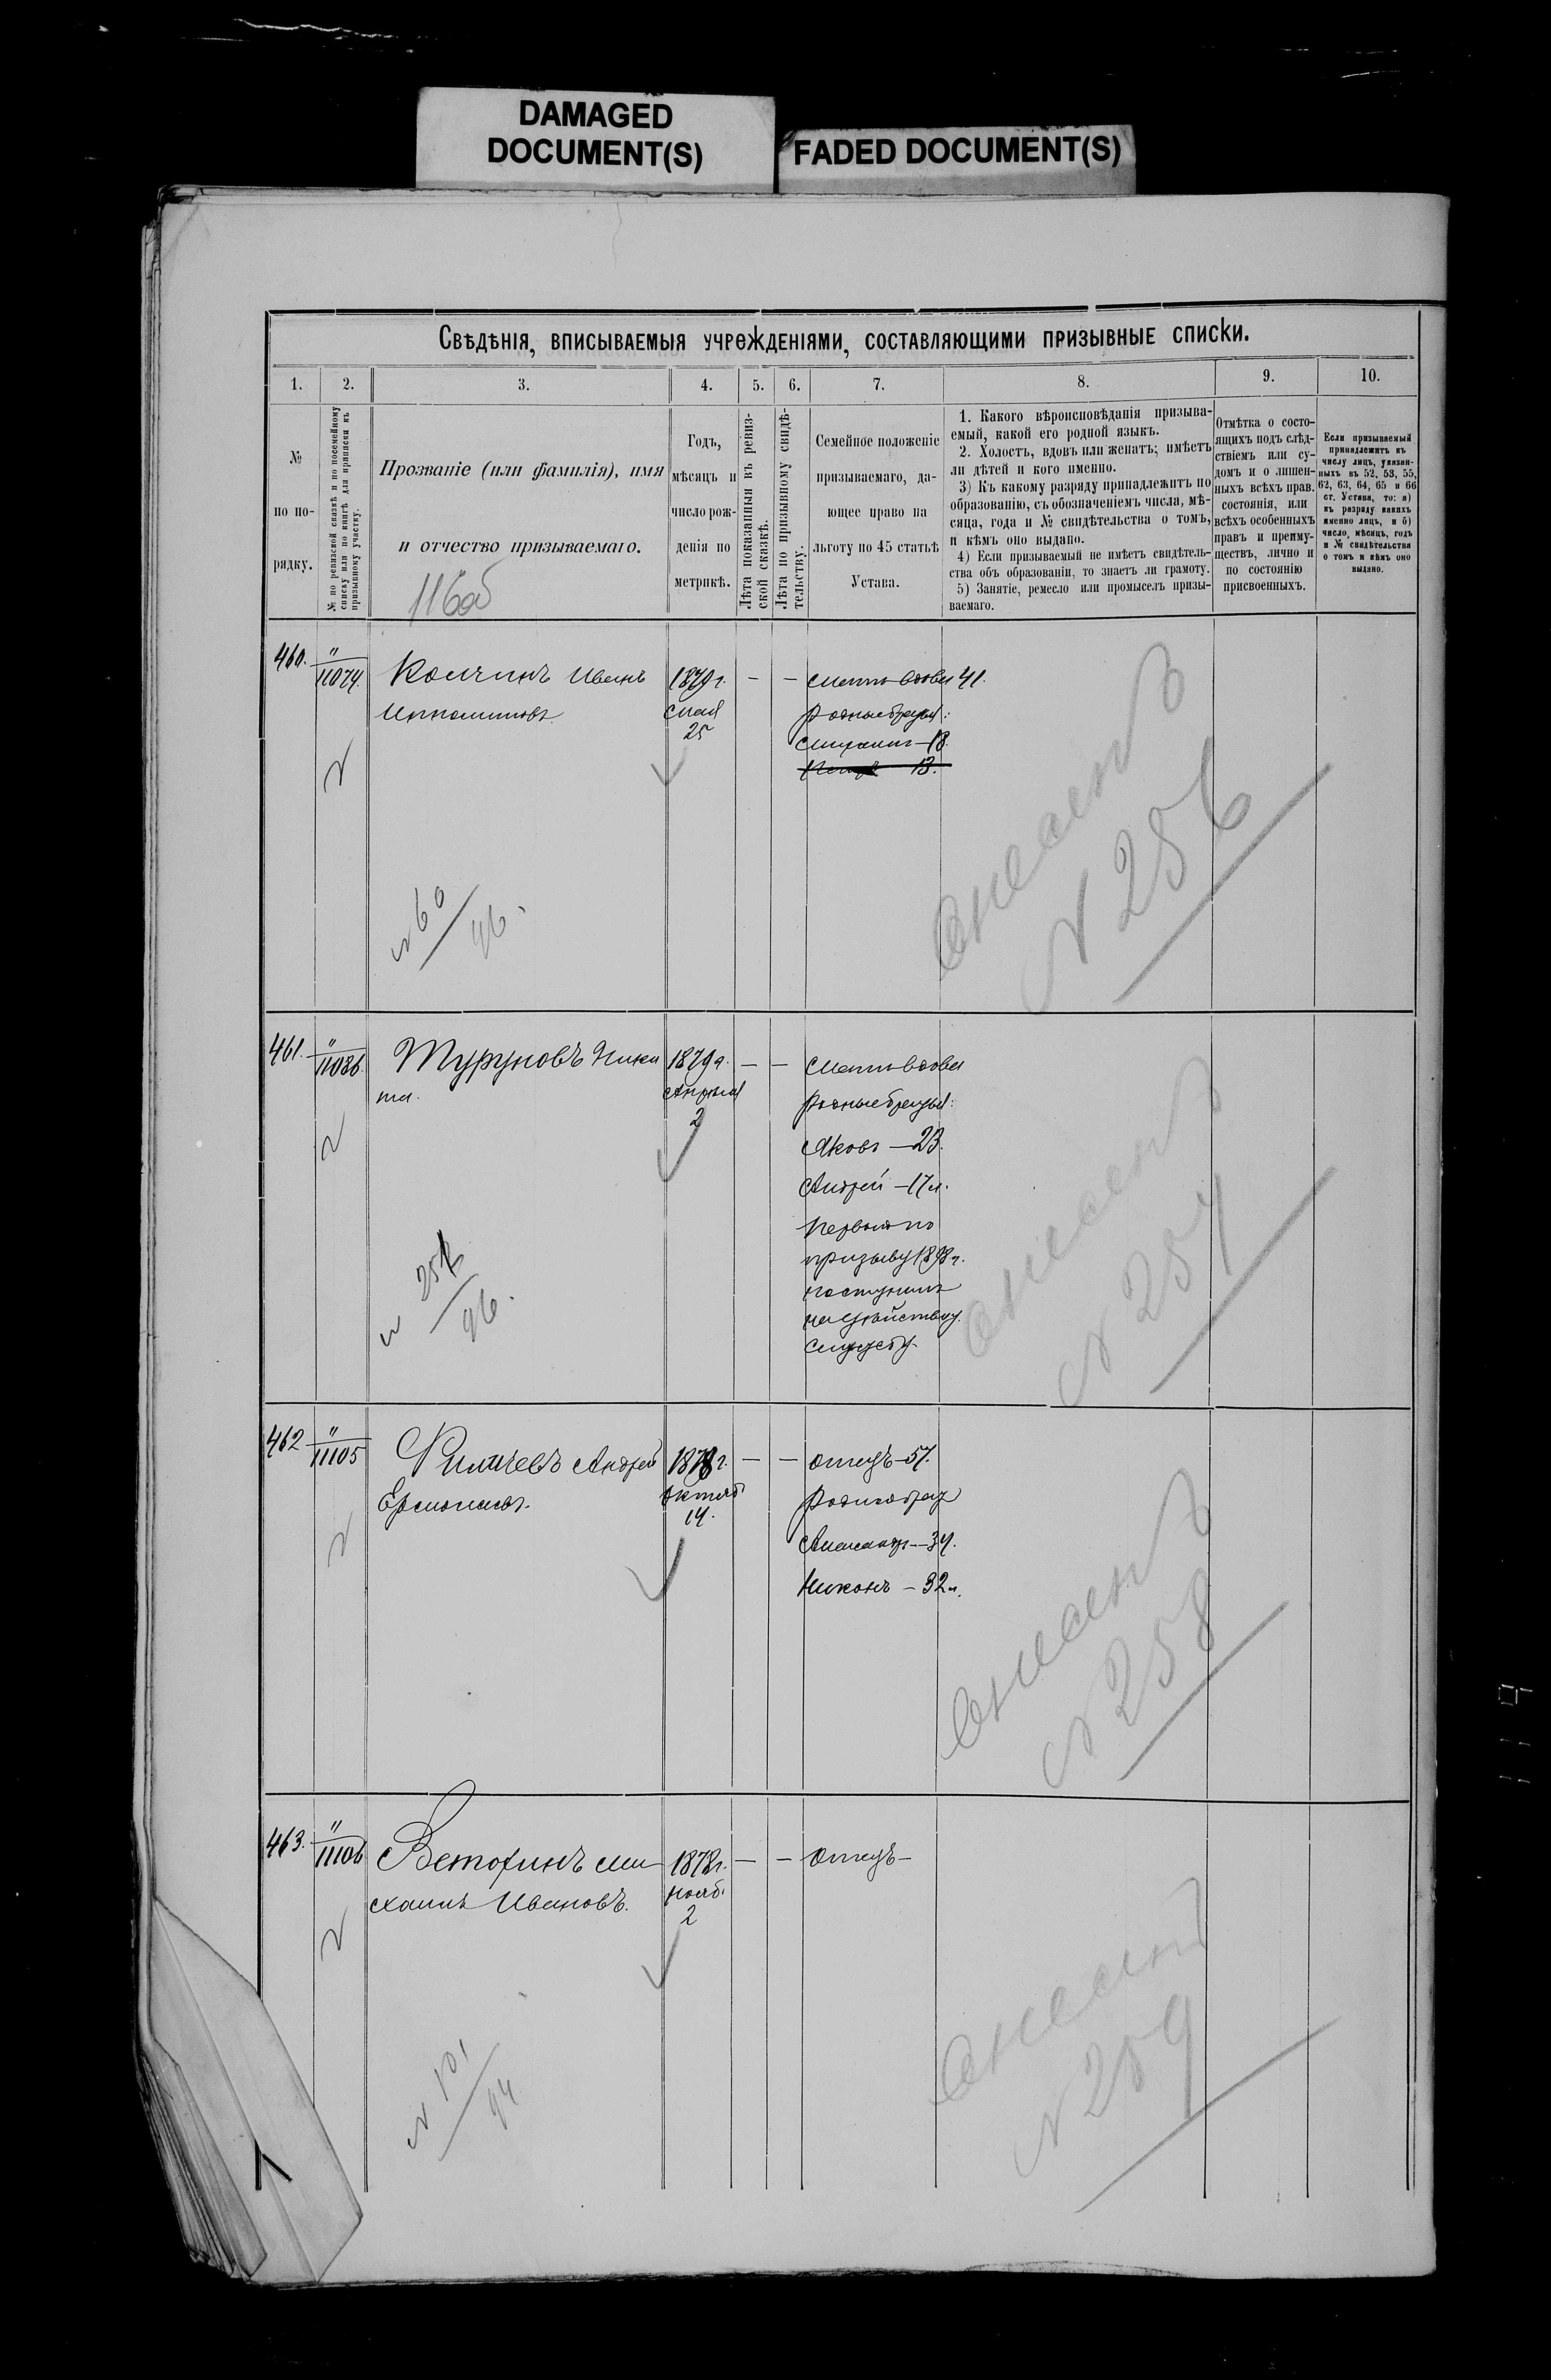 DAMAGED
DOCUMENT(S)
FADED DOCUMENT(S)
Свѣдѣнія, вписываемыя учрежденіями, составляющими призывные списки.
1.
2.
3.
4.
5.
6.
7.
8.
9.
10.
№
по по-
рядку.
№ по ревизской сказкѣ и по посемейному
списку или по книгѣ для приписки къ
призывному участку.
Прозваніе (или фамилія), имя
и отчество призываемаго.
Годъ,
мѣсяцъ и
число рож-
денія по
метрикѣ.
Лѣта показанныя въ ревиз-
ской сказкѣ.
Лѣта по призывному свидѣ-
тельству.
Семейное положеніе
призываемаго, да-
ющее право на
льготу по 45 статьѣ
Устава.
1. Какого вѣроисповѣданія призыва-
емый, какой его родной языкъ.
2. Холостъ, вдовъ или женатъ; имѣетъ
ли дѣтей и кого именно.
3) Къ какому разряду принадлежитъ по
образованію, съ обозначеніемъ числа, мѣ-
сяца, года и № свидѣтельства о томъ,
и кѣмъ оно выдано.
4) Если призываемый не имѣетъ свидѣтель-
ства объ образованіи, то знаетъ ли грамоту.
5) Занятіе, ремесло или промыселъ призы-
ваемаго.
Отмѣтка о состо-
ящихъ подъ слѣд-
ствіемъ или су-
домъ и о лишен-
ныхъ всѣхъ прав.
состоянія, или
всѣхъ особенныхъ
правъ и преиму-
ществъ, лично и
по состоянію
присвоенныхъ.
Если призываемый
принадлежитъ къ
числу лицъ, указан-
ныхъ въ 52, 53, 55,
62, 63, 64, 65 и 66
ст. Устава, то: а)
къ разряду какихъ
именно лицъ, и б)
число, мѣсяцъ, годъ
и № свидѣтельства
о томъ и кѣмъ оно
выдано.
460.
"
11074.
Иванъ
1879 г.
Мая
25
— —
Мать вдова 41.
Родные братья:
Михаилъ — 18.
13.
N 60
96.
N 256
461.
"
11086.
Турундовъ Ники
та.
1879 г.
Апрѣля
2
— —
Мать вдова
Родные братья:
Яковъ — 23.
Андрей — 17 л.
Первый по
призыву 1898 г.
поступилъ
на дѣйствит.
службу.
96.
N 257
462
"
11105
Андрей
1878 г.
Октяб
14.
— —
Отецъ — 57.
Родные братья
Александръ — 34.
Никонъ — 32 л.
N 258
463.
"
11106
Ветохинъ Ми
хаилъ Ивановъ.
1878 г.
Нояб.
2
— —
Отецъ —
N 101
94
N 259